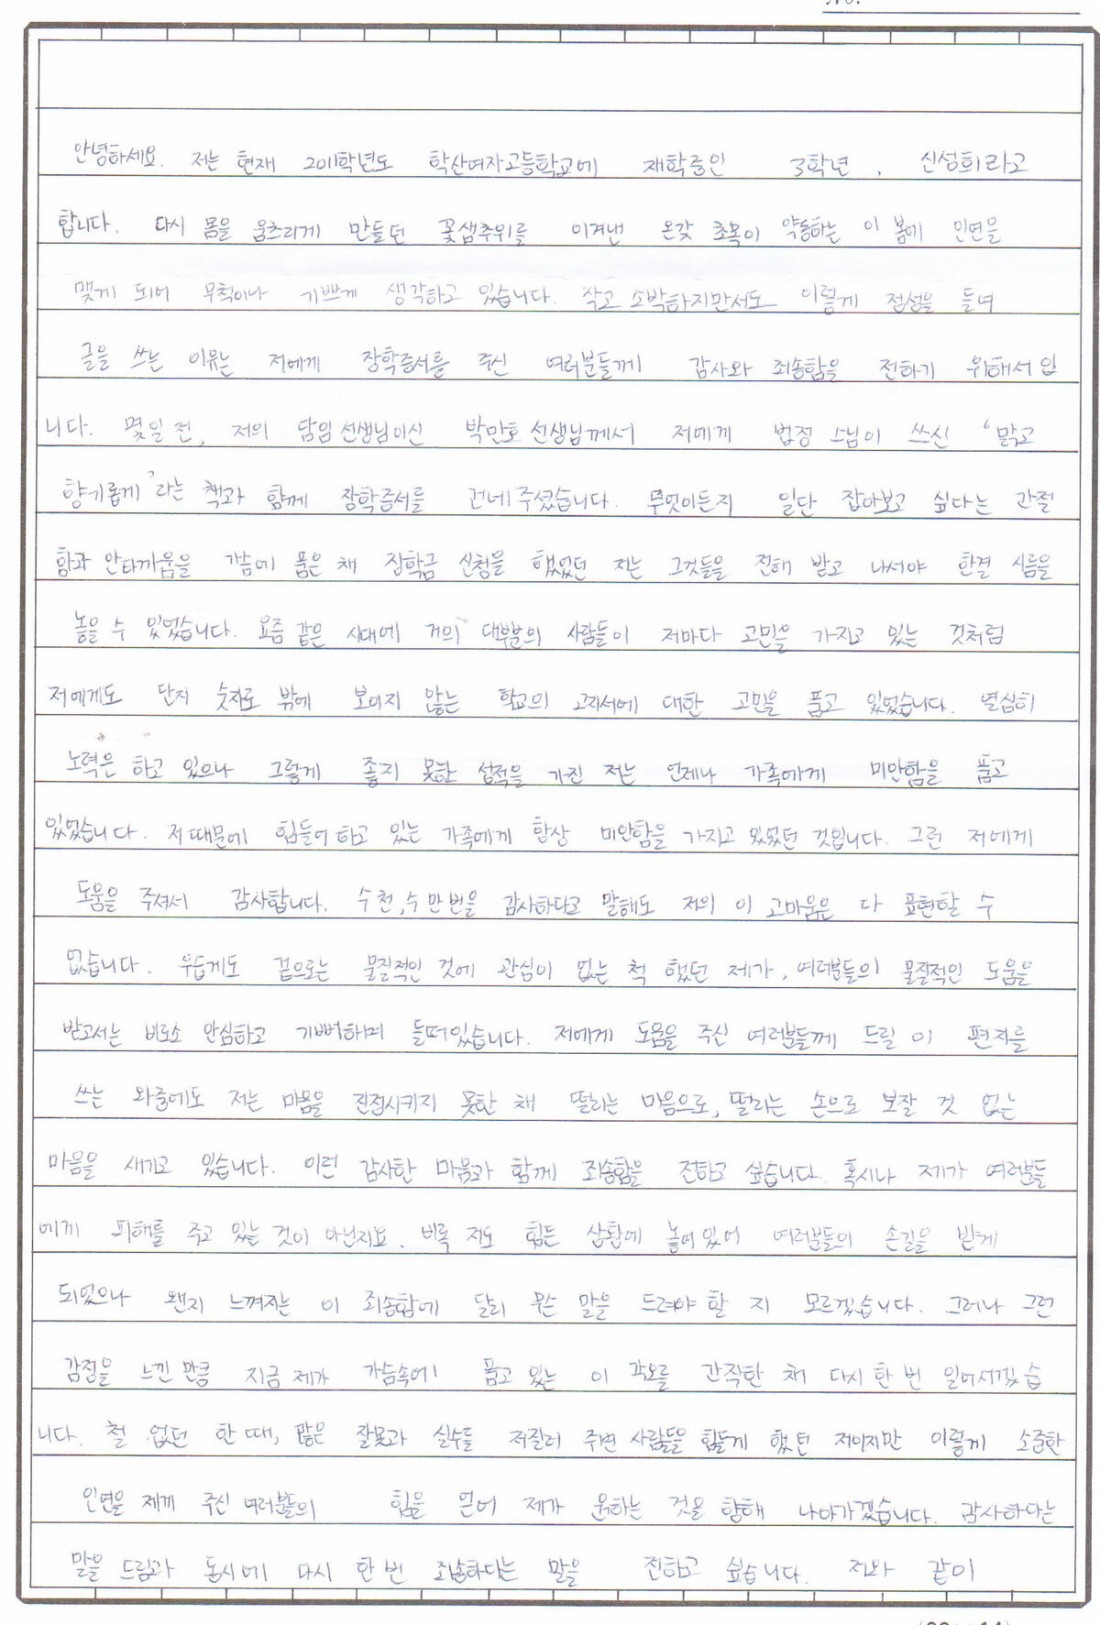 안녕하세요. 저는 현재 2011학년도 학산여자고등학교에 재학중인 3학년, 신성희라고
합니다. 다시 몸을 움츠리게 만들던 꽃샘추위를 이겨낸 온갖 초목이 약동하는 이 봄에 인연을
맺게 되어 무척이나 기쁘게 생각하고 있습니다. 작고 소박하지만서도 이렇게 정성을 들여
글을 쓰는 이유는 저에게 장학증서를 주신 여러분들께 감사와 죄송함을 전하기 위해서 입
니다. 몇일 전, 저의 담임 선생님이신 박만호 선생님께서 저에게 법정 스님이 쓰신 '맑고
향기롭게'라는 책과 함께 장학증서를 건네 주셨습니다. 무엇이든지 일단 잡아보고 싶다는 간절
함과 안타까움을 가슴에 품은 채 장학금 신청을 했었던 저는 그것들을 전해 받고 나서야 한결 시름을
놓을 수 있었습니다. 요즘 같은 시대에 거의 대부분의 사람들이 저마다 고민을 가지고 있는 것처럼
저에게도 단지 숫자로 밖에 보이지 않는 학교의 고지서에 대한 고민을 품고 있었습니다. 열심히
노력은 하고 있으나 그렇게 좋지 못한 성적을 가진 저는 언제나 가족에게 미안함을 품고
있었습니다. 저 때문에 힘들어 하고 있는 가족에게 항상 미안함을 가지고 있었던 것입니다. 그런 저에게
도움을 주셔서 감사합니다. 수천, 수만번을 감사하다고 말해도 저의 이 고마움은 다 표현할 수
없습니다. 우습게도 겉으로는 물질적인 것에 관심이 없는 척 했던 제가, 여러분들의 물질적인 도움을
받고서는 비로소 안심하고 기뻐하며 들떠있습니다. 저에게 도움을 주신 여러분들께 드릴 이 편지를
쓰는 와중에도 저는 마음을 진정시키지 못한 채 떨리는 마음으로, 떨리는 손으로 보잘 것 없는
마음을 새기고 있습니다. 이런 감사한 마음과 함께 죄송함을 전하고 싶습니다. 혹시나 제가 여러분들
에게 피해를 주고 있는 것이 아닌지요. 비록 저도 힘든 상황에 놓여있어 여러분들의 손길을 받게
되었으나 왠지 느껴지는 이 죄송함에 달리 무슨 말을 드려야 할 지 모르겠습니다. 그러나 그런
감정을 느낀 만큼 지금 제가 가슴속에 품고 있는 이 각오를 간직한 채 다시 한 번 일어서겠습
니다. 철 없던 한 때, 많은 잘못과 실수들 저질러 주변 사람들을 힘들게 했던 저이지만 이렇게 소중한
인연을 제게 주신 여러분들의 힘을 얻어 제가 원하는 것을 향해 나아가겠습니다. 감사하다는
말을 드림과 동시에 다시 한 번 죄송하다는 말을 전하고 싶습니다. 저와 같이